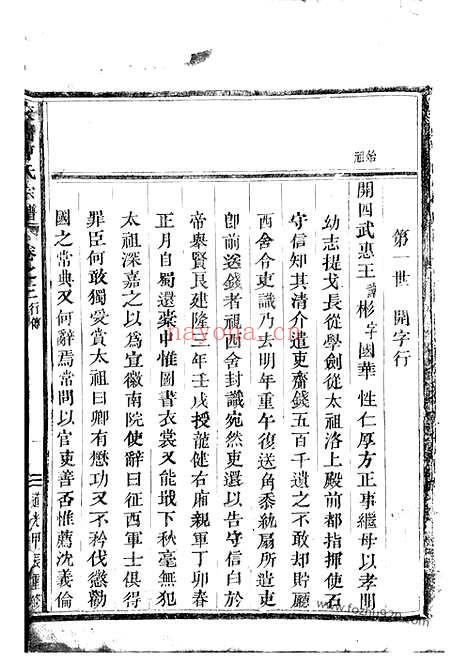 第一世 開字行
始祖
開四武惠王諱彬字國華 性仁厚方正事繼母以孝聞
幼志提戈長從學劍從太祖洛上殿前都指揮使石
守信知其清介遣吏齎錢五百千遺之不敢却貯廳
西舍令吏識乃去明年重午復送角黍紈扇所遣吏
卽前送錢者視西舍封識宛然吏還以告守信白於
帝舉賢良建隆三年壬戌授龍健右廂親軍丁卯春
正月自蜀還橐中惟圖書衣裳又能戢下秋毫無犯
太祖深嘉之以爲宣徽南院使辭曰征西軍士俱得
罪臣何敢獨受賞太祖曰卿有懋功又不矜伐懲勸
國之常典又何辭焉常問以官吏善否惟薦沈義倫
曹氏宗譜 卷之二 行傳
一
道光甲辰重修
nayona.cn
www.fozhu920.com